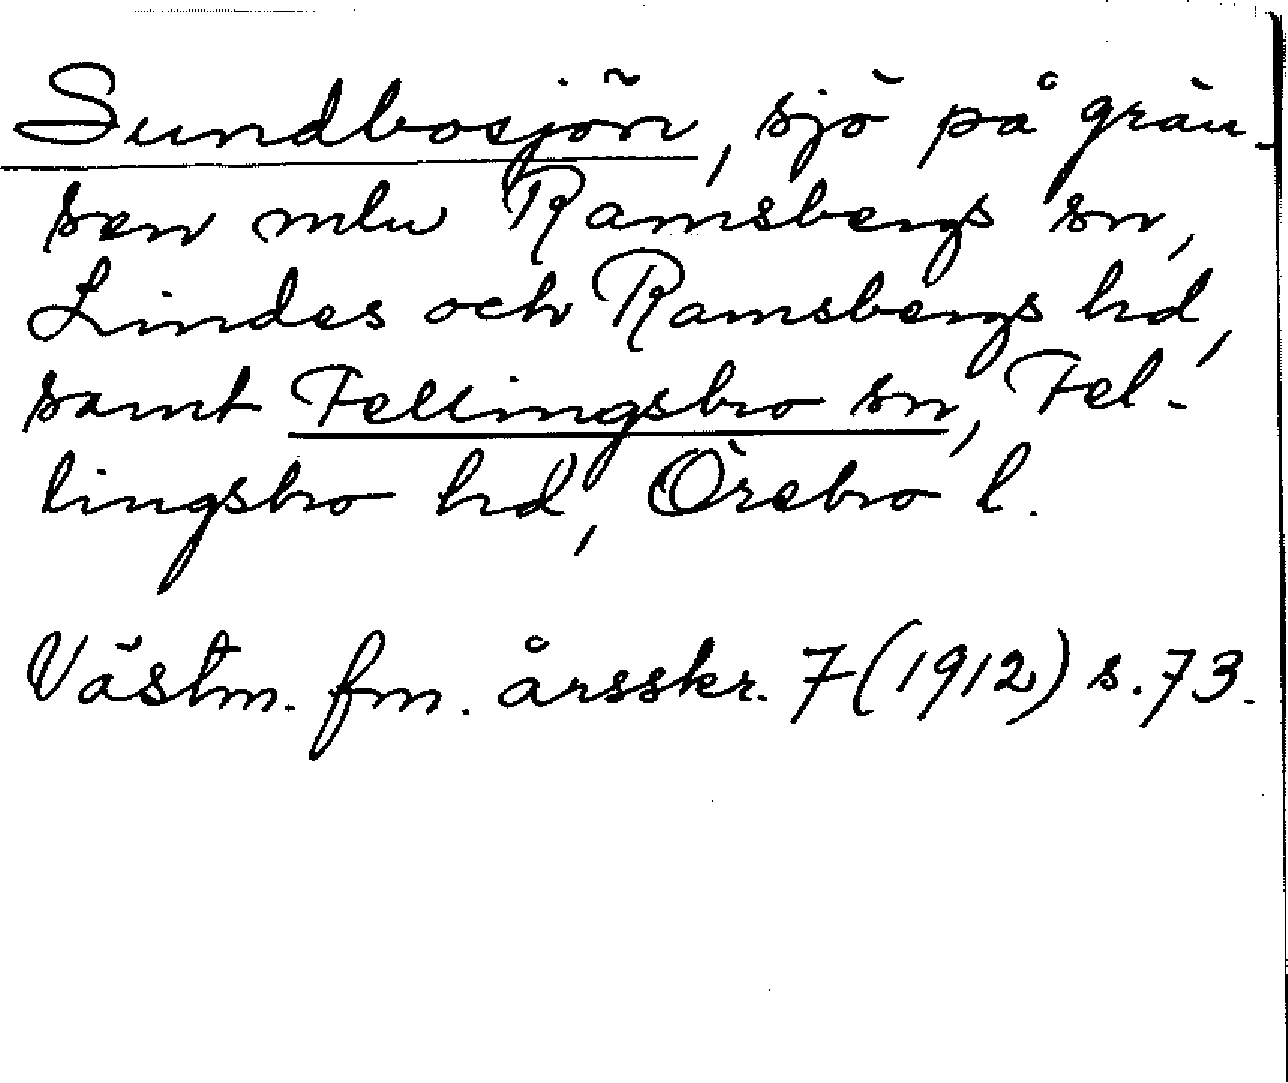 Sundbosjön, sjö på grän-
sen mln Ramsbergs sn,
Lindes och Ramsbergs hd,
samt Fellingsbro sn, Fel-
lingsbro hd, Örebro l.
Västm. fm. årsskr. 7 (1912) s. 73.